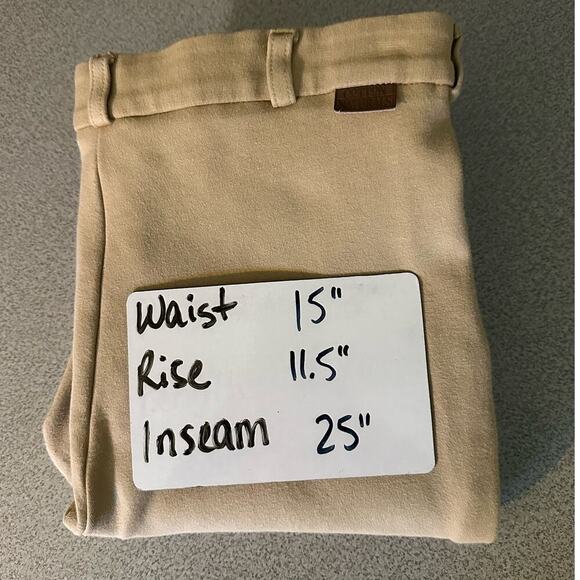 Waist 15"
Rise 11.5"
Inseam 25"